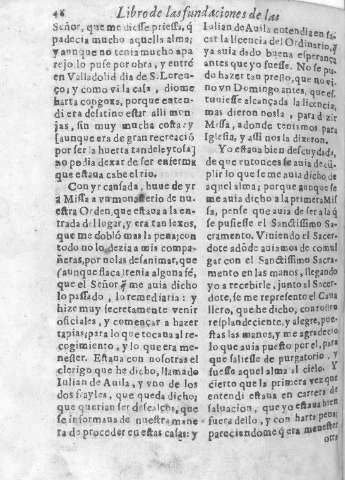 46 Libro de las fundaciones de las
Señor, que me diesse priessa, q̃
padecia mucho aquella alma;
y aunque no tenia mucho apa
rejo lo puse por obra, y entrè
en Valladolid dia de S. Loren-
ço; y como vi la casa, diome
harta congoxa, porque enten-
di era desatino estar alli mon-
jas, sin muy mucha costa: y
(aunque era de gran recreaciõ
por ser la huerta tan deleytosa)
no podia dexar de ser enferma
que estaua cabe el rio.
Con yr cansada, huue de yr
à Missa a vn monesterio de nu-
estra Orden, que estaua a la en-
trada del lugar, y era tan lexos,
que me doblò mas la pena; con
todo no lo dezia a mis compa-
ñeras, por no las desanimar, que
(aunque flaca) tenia alguna fé,
que el Señor, q̃ me auia dicho
lo passado, lo remediaria: y
hize muy secretamente venir
oficiales, y començar a hazer
tapias, para lo que tocaua al re-
cogimiento, y lo que era me-
nester. Estaua con nosotras el
clerigo que he dicho, llamado
Iulian de Auila, y vno de los
dos frayles, que queda dicho;
que querian ser descalços, que
se informaua de nuestra mane
ra de proceder en estas casas: y
Iulian de Auila entendia en sa-
car la licencia del Ordinario, q̃
ya auia dado buena esperança
antes que yo fuesse. No se pu-
do hazer tan presto, que no vi-
no vn Domingo antes, que es-
tuuiesse alcançada la licencia,
mas dieron nosla, para dezir
Missa, adonde teniamos para
Iglesia, y assi nos la dixeron.
Yo estaua bien descuydada,
de que entonces se auia de cũ-
plir lo que se me auia dicho de
aquel alma; porque aunque se
me auia dicho a la primera Mis
sa, pense que auia de ser a la q̃
se pusiesse el Sanctissimo Sa-
cramento. Viniendo el Sacer-
dote adõde auiamos de comul
gar con el Sanctissimo Sacra-
mento en las manos, llegando
yo a recebirle, junto al Sacer-
dote, se me representó el Caua
llero, que he dicho, con rostro
resplandeciente, y alegre, pue-
stas las manos, y me agradecio
lo que auia puesto por el, para
que saliesse de purgatorio, y
fuesse aquel alma al cielo. Y
cierto que la primera vez que
entendi estaua en carrera de
saluacion, que yo estaua bien
fuera dello, y con harta pena;
pareciendome q̃ era menester
otra